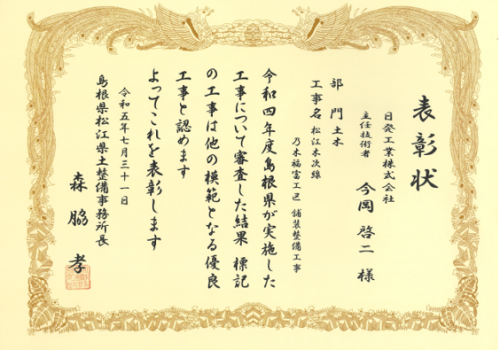 表彰状
日発工業株式会社
主任技術者 今岡 啓二 様
部門 土木
工事名 松江木次線
乃木福富工区 舗装整備工事
令和四年度島根県が実施した
工事について審査した結果 標記
の工事は他の模範となる優良
工事と認めます
よってこれを表彰します
令和五年七月三十一日
島根県松江県土整備事務所長
森脇 孝